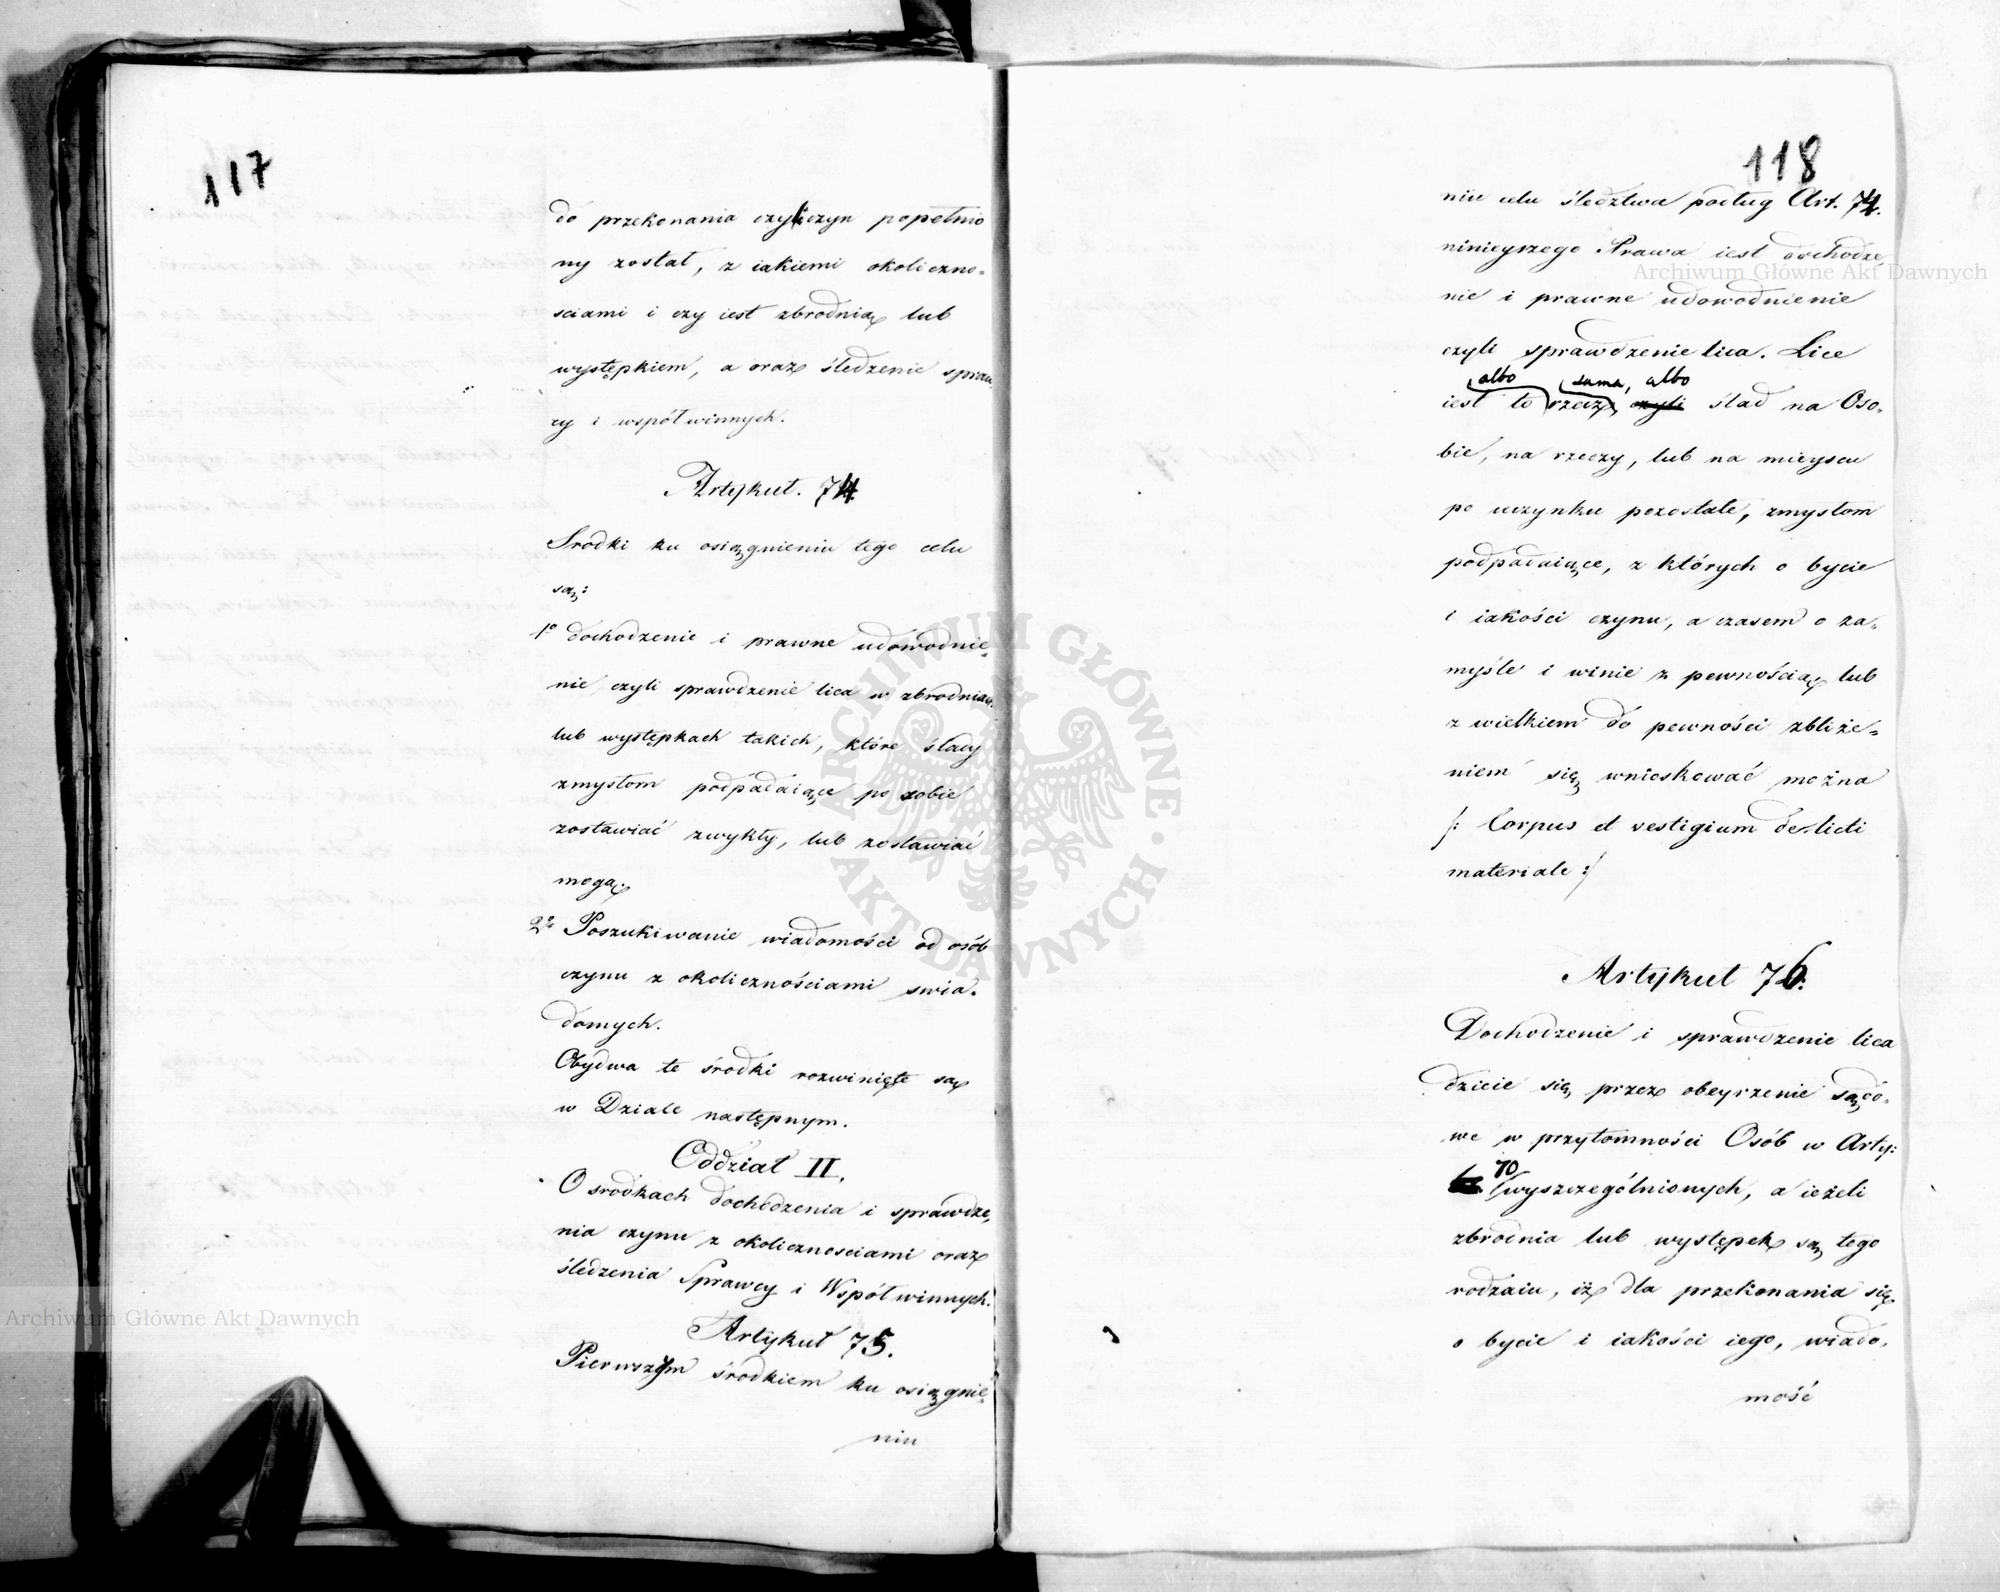 117
do przekonania czyli czyn popełnio
ny został, z iakiemi okoliczno=
sciami i czy iest zbrodnią lub
występkiem, a oraz śledzenie spraw
cy i współwinnych.
Artykuł. 74.
Srodki ku osiągnieniu tego celu
są:
1º dochodzenie i prawne udowodnie=
nie czyli sprawdzenie lica w zbrodniach
lub występkach takich, które ślady
zmysłom podpadaiące po sobie
zostawiać zwykły, lub zostawiać
mogą.
2º Poszukiwanie wiadomości od osób
czynu z okolicznościami swia=
domych.
Obydwa te środki rozwinięte są
w Dziale następnym.
Oddział II.
O srodkach dochodzenia i sprawdze=
nia czynu z okolicznosciami oraz
śledzenia Sprawcy i Współwinnych.
Artykuł 75.
Pierwszym środkiem ku osiągnie=
niu
118
niu celu śledztwa podług Art. 74.
ninieyszego Prawa iest dochodze=
nie i prawne udowodnienie
czyli sprawdzenie lica. Lice
albo sama, albo
iest to rzecz, czyli ślad na Oso=
bie, na rzeczy, lub na mieyscu
po uczynku pozostałe, zmysłom
podpadaiące, z których o bycie
i iakości czynu, a czasem o za=
myśle i winie z pewnością lub
z wielkiem do pewności zbliże=
niem się wnioskować można
/: Corpus et vestigium delicti
materiale :/
Artykuł 76.
Dochodzenie i sprawdzenie lica
dzieie się przez obeyrzenie sądo=
we w przytomności Osób w Arty:
70 wyszczególnionych, a ieżeli
zbrodnia lub występek są tego
rodzaiu, iż dla przekonania się
o bycie i iakości iego, wiado=
mość
Archiwum Główne Akt Dawnych
ARCHIWUM GŁÓWNE AKT DAWNYCH
Archiwum Główne Akt Dawnych